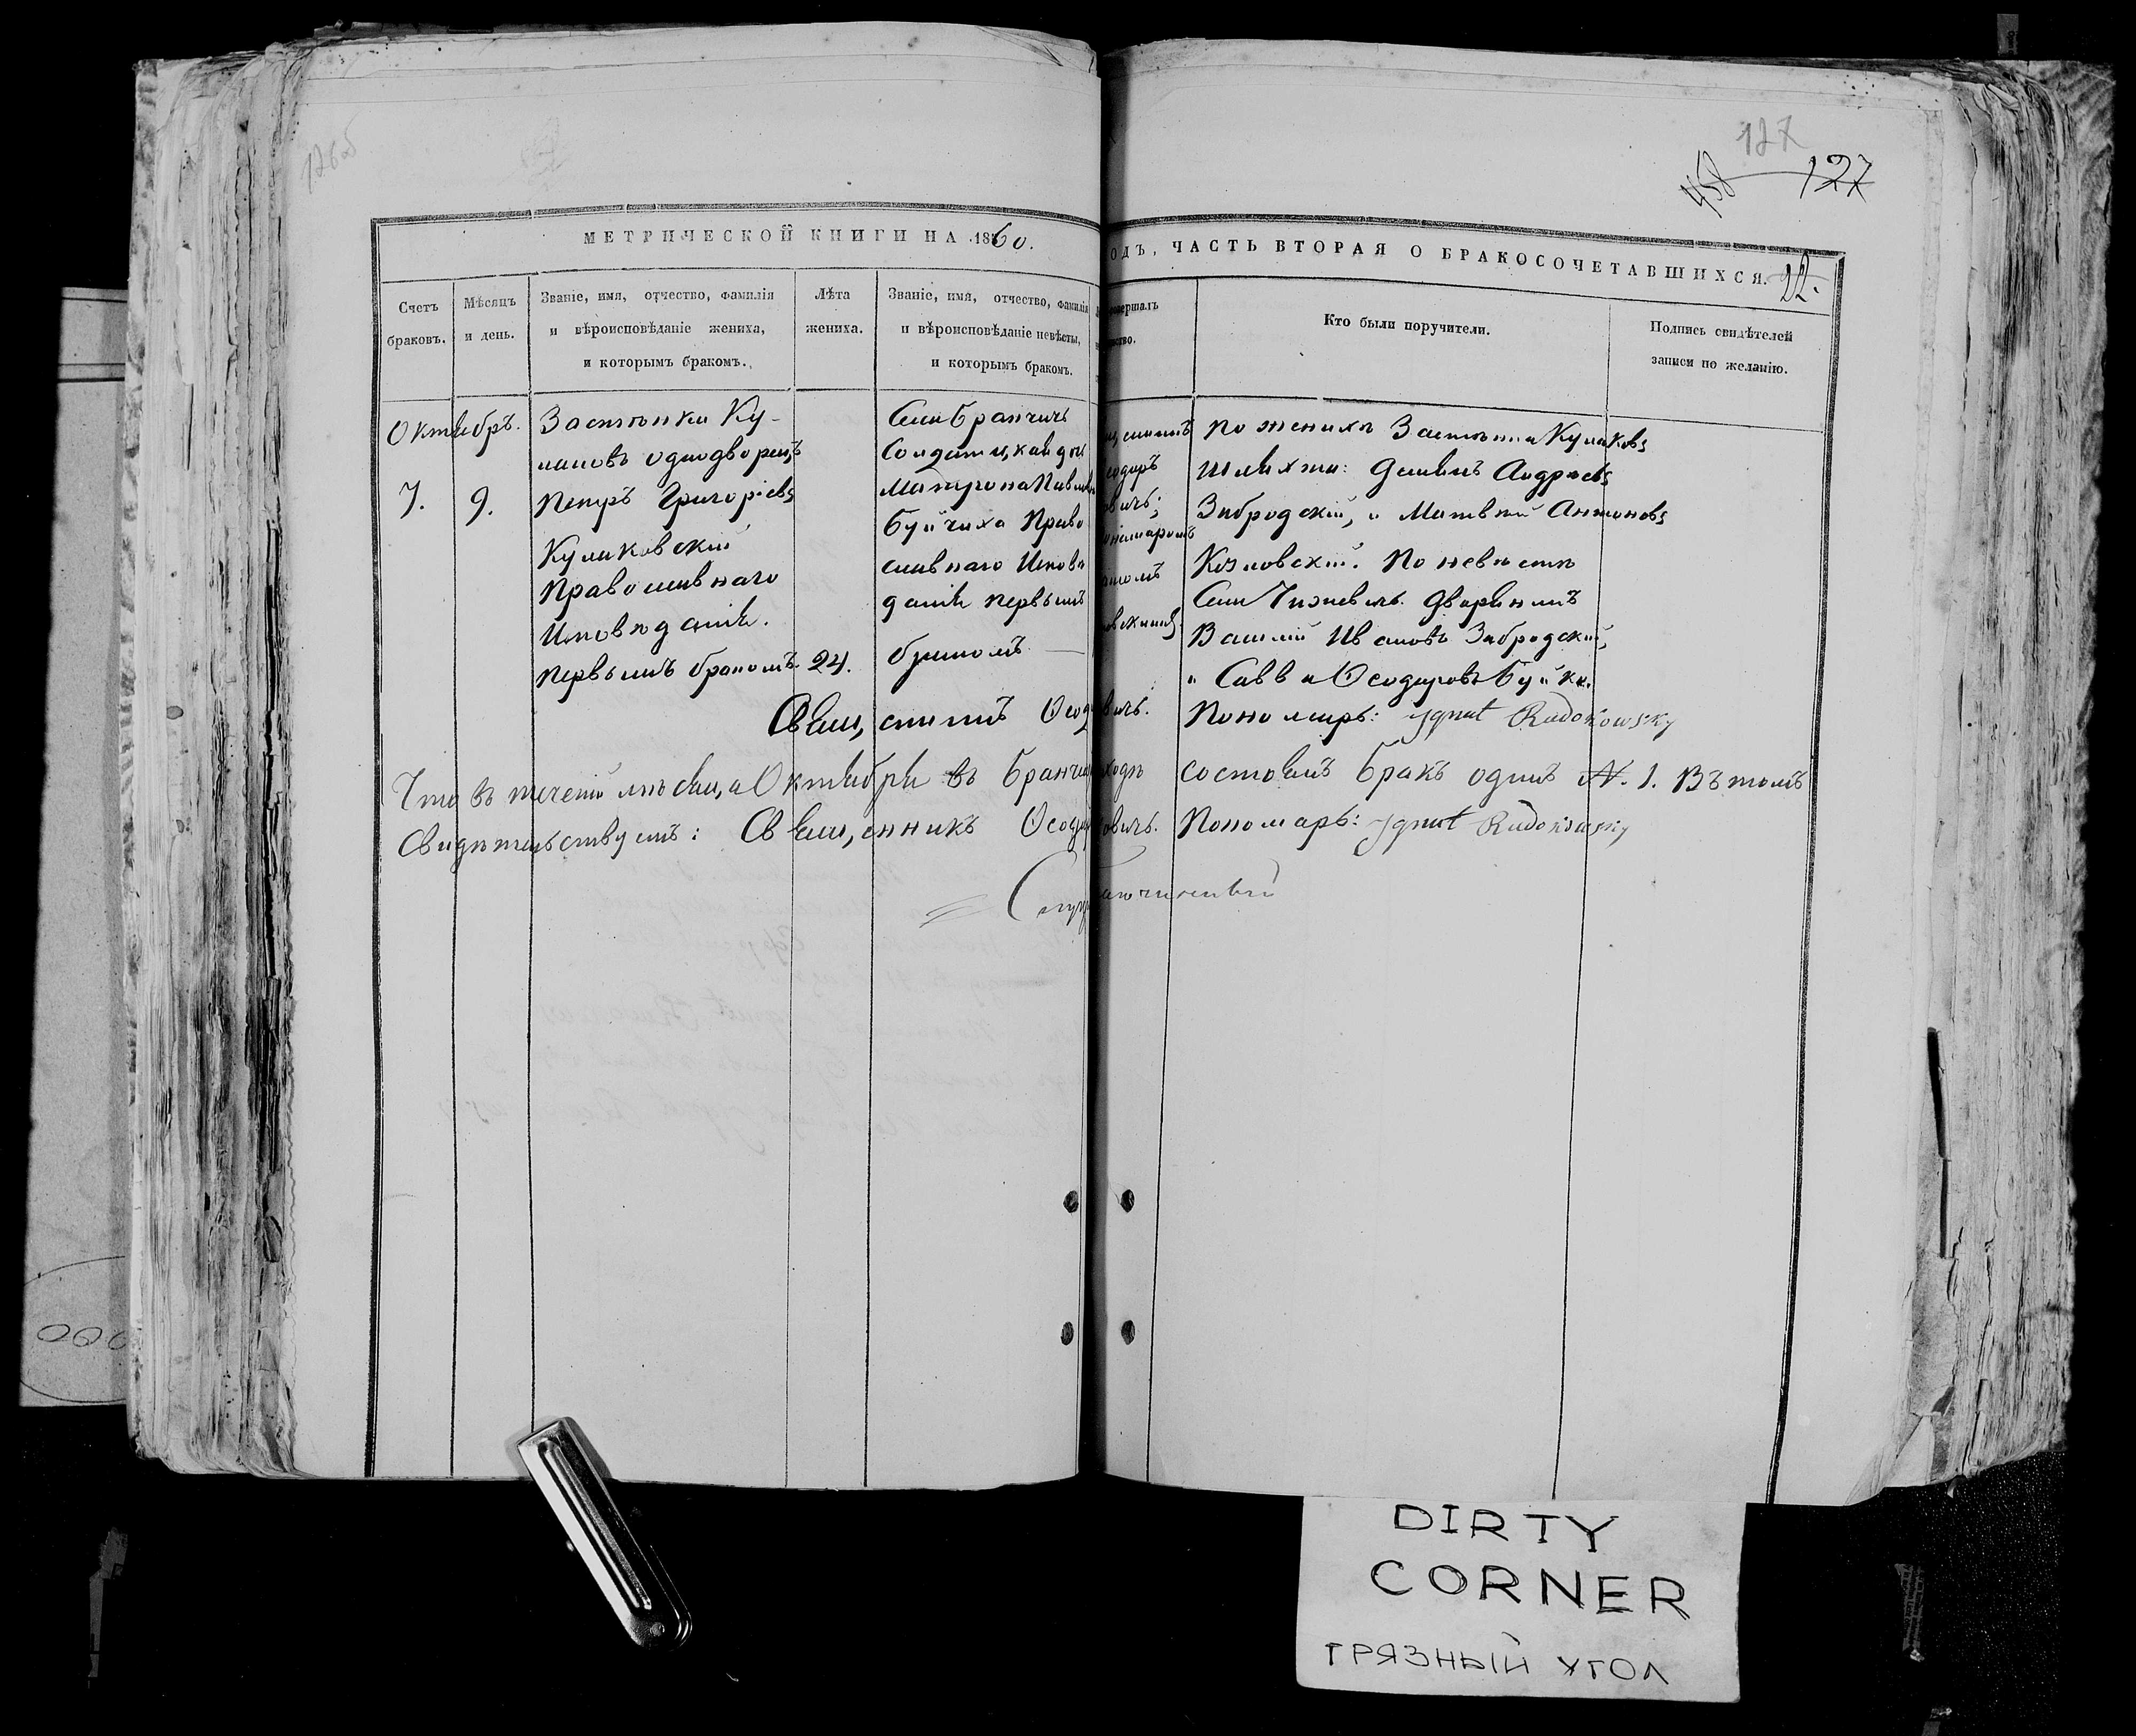 127
127
458
126об
МЕТРИЧЕСКОЙ КНИГИ НА 1860.
ОДЪ, ЧАСТЬ ВТОРАЯ О БРАКОСОЧЕТАВШИХСЯ. 22.
Счетъ
браковъ.
Мѣсяцъ
и день.
Званіе, имя, отчество, фамилія
и вѣроисповѣданіе жениха,
и которымъ бракомъ.
Лѣта
жениха.
Званіе, имя, отчество, фамилія
и вѣроисповѣданіе невѣсты,
и которымъ бракомъ.
совершалъ
Кто были поручители.
Подпись свидѣтелей
записи по желанію.
Октябрь.
7. 9.
Застѣнка Ку-
лаковъ однодворецъ
Петръ Григоріевъ
Куликовскій
Православнаго
Исповѣданія.
первымъ бракомъ. 24.
Села Бранчичь
Солдатская дочь
Матрона Павлова
Буйчиха Право
славнаго Исповѣ
данія первымъ
бракомъ
одоръ
вичъ;
пономаромъ
По женихѣ Застѣнка Кулаковъ
Шляхта: Демянъ Андреевъ
Забродскій, и Матвѣй Антоновъ
Козловскій. По невѣстѣ
Села Чижевичь Дворянинъ
Василій Ивановъ Забродскій,
и Савва Ѳеодоровъ Буйко.
Священникъ Ѳеод вичъ. Пономарь: Ignat Rudakowsky
Что въ теченіи мѣсяца Октября въ Бранчи ходѣ состоялъ бракъ одинъ N. 1. Въ томъ
Свидѣтельствуемъ: Священникъ Ѳеодо овичъ. Пономарь: Ignat Rudakowsky
DIRTY
CORNER
ГРЯЗНЫЙ УГОЛ